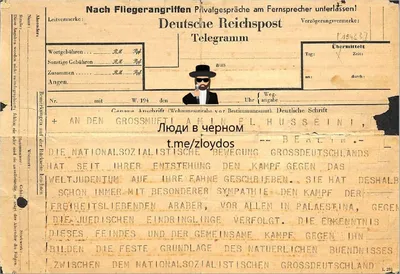 Nach Fliegerangriffen Privatgespräche am Fernsprecher unterlassen!
Leitvermerke:
Deutsche Reichspost
Verzögerungsvermerke:
Telegramm
Übermittelt
Wortgebühren
Sonstige Gebühren
Zusammen
Angen.
Nr. mit W. 194 den um Uhr
Deutsche Schrift
+ AN DEN GROSSMUFTI AMIN EL HUSSEINI,
Люди в черном
-- BERLIN.--
t.me/zloydos
DIE NATIONALSOZIALISTISCHE BEWEGUNG GROSSDEUTSCHLANDS
HAT SEIT IHRER ENTSTEHUNG DEN KAMPF GEGEN DAS
WELTJUDENTUM AUF IHRE FAHNE GESCHRIEBEN. SIE HAT DESHALB
SCHON IMMER MIT BESONDERER SYMPATHIE DEN KAMPF DER
FREIHEITSLIEBENDEN ARABER, VOR ALLEM IN PALAESTINA, GEGEN
DIE JUEDISCHEN EINDRINGLINGE VERFOLGT. DIE ERKENNTNIS
DIESES FEINDES UND DER GEMEINSAME KAMPF GEGEN IHN
BILDEN DIE FESTE GRUNDLAGE DES NATUERLICHEN BUENDNISSES
ZWISCHEN DEM NATIONALSOZIALISTISCHEN GROSSDEUTSCHLAND